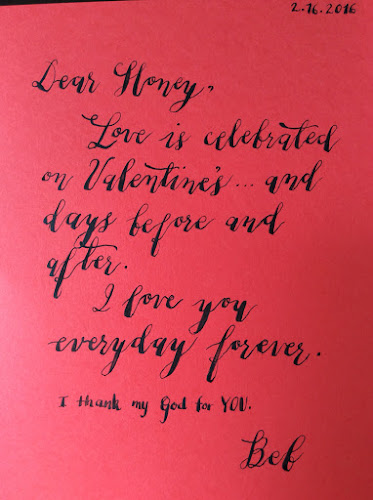 2.16.2016
Dear Honey,
Love is celebrated
on Valentine's... and
days before and
after.
I love you
everyday forever.
I thank my God for YOU.
Beb